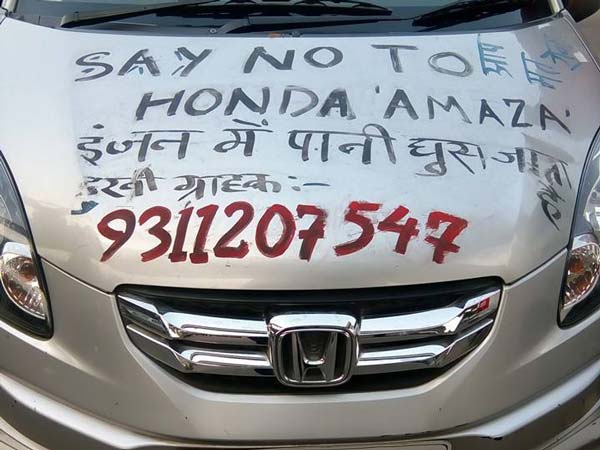 SAY NO TO
HONDA 'AMAZA'
इंजन में पानी घुस जाता है
दुखी ग्राहक :-
9311207547